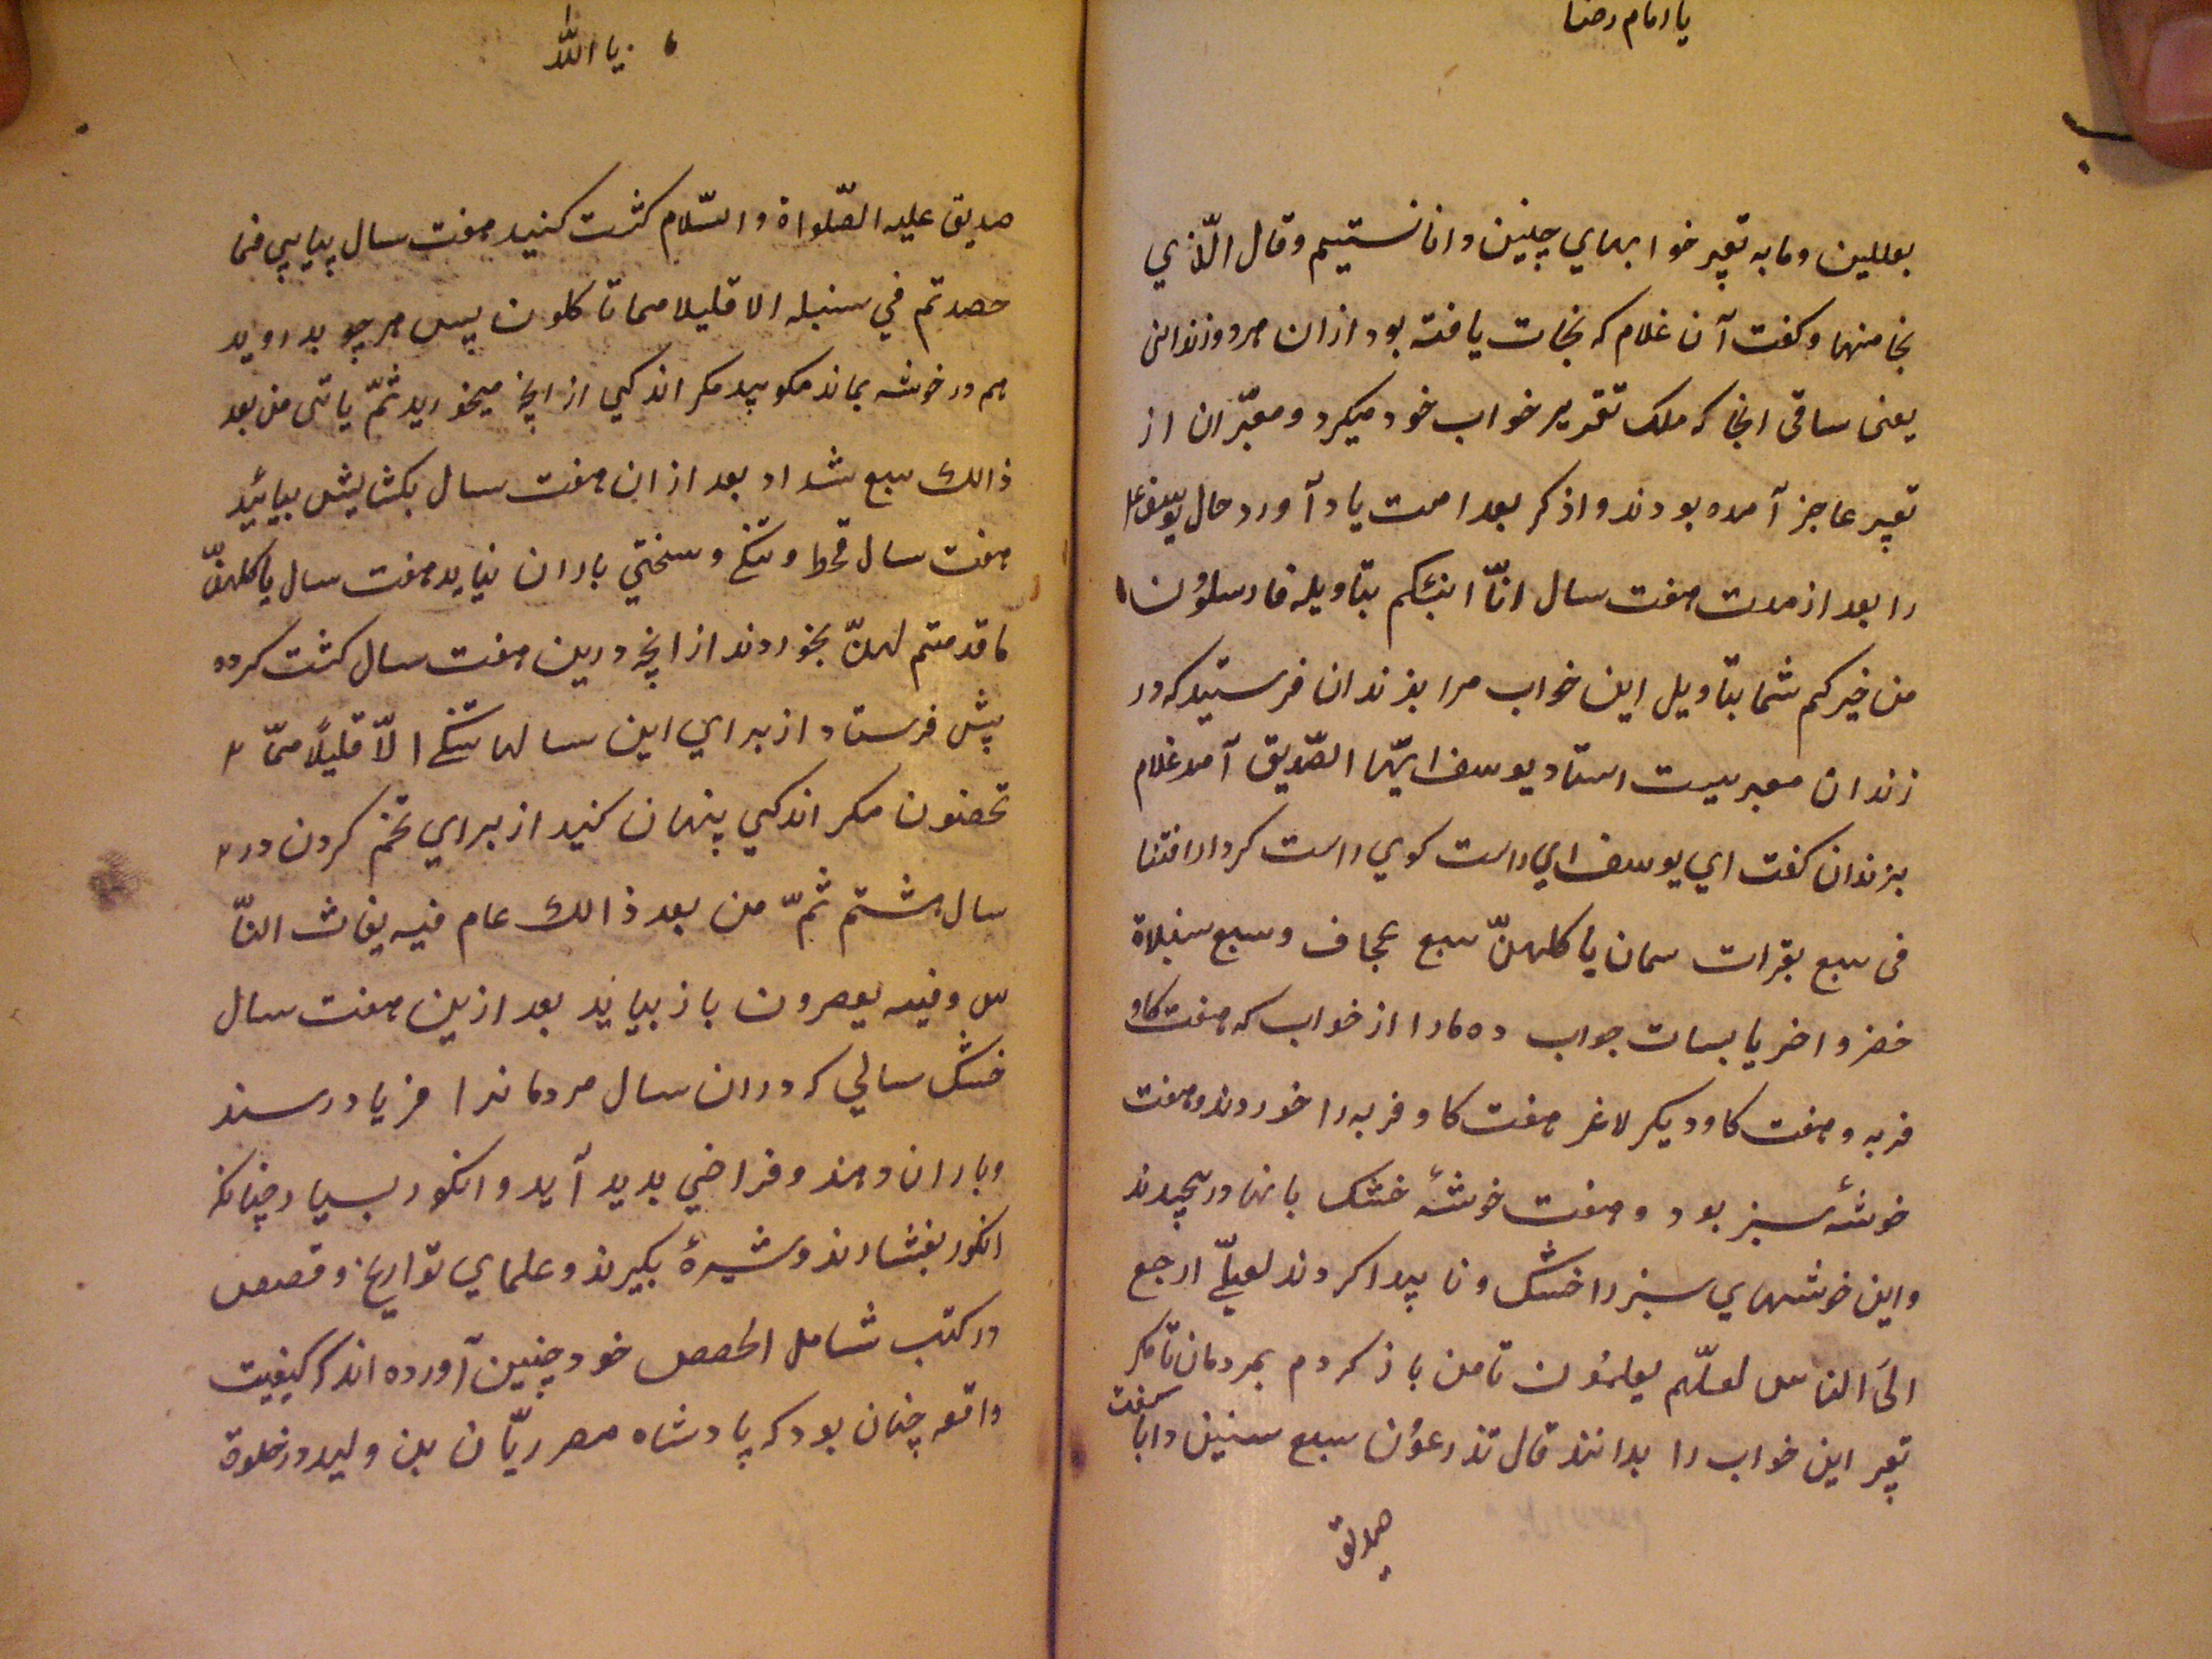 یا امام رضا
بعالمین وما به تعبیر خوابهای چنین دانا نستیم وقال الّذی
نجا منهما وکفت آن غلام که نجات یافته بود ازان هردو زندانی
یعنی ساقی انجا که ملک تقریر خواب خود میکرد ومعبّران از
تعبیر عاجز آمده بودند واذکر بعد امت یاد آورد حال یوسف ع
را بعد از مدت هفت سال انّا انبئکم بتاویله فارسلوُن
من خبرکم شما بتاویل این خواب مرا بزندان فرستید که در
زندان معبریست استاد یوسف ایّها الصّدیق آمد غلام
بزندان کفت ای یوسف ای راست کوی راست کردار افتنا
فی سبع بقرات سمان یاکلهنّ سبع عجاف وسبع سنبلاة
خضر واخر یابسات جواب ده مارا از خواب که هفت کاو
فربه وهفت کاو دیکر لاغر هفت کاو فربه را خوردند وهفت
خوشهٔ سبز بود وهفت خوشهٔ خشک بانها در پیچیدند
واین خوشهای سبز را خشک ونا پیدا کردند لعلّی ارجع
الیَ الناس لعلّهم یعلموُن تا من باز کردم بمردمان تا مکر
تعبیر این خواب را بدانند قال تذرعوُن سبع سنین دابا کفت
صدیق
یا الله
صدیق علیه الصّلواة والسّلام کشت کنید هفت سال پیاپی فما
حصدتم فی سنبله الا قلیلا مما تاکلون پس هر چو بدروید
هم در خوشه بماند مکوبید مکر اندکی از انچه میخورید ثمّ یاتی من بعد
ذالك سبع شداد بعد از ان هفت سال بکشایش بیائید
هفت سال قحط وتنکی وسختی باران نیاید هفت سال یاکلهنّ
ما قدمتم لهنّ بخوردند از انچه درین هفت سال کشت کرده
پیش فرستاد از برای این سالها تنکی الّا قلیلاً ممّا
تحصنون مکر اندکی پنهان کنید از برای تخم کردن در
سال هشتم ثمّ من بعد ذالك عام فیه یغاث النّا
س وفیه یعصرون باز بیاید بعد ازین هفت سال
خشک سالی که دران سال مردمانرا فریاد رسند
وباران دهند وفراخی بدید آید وانکور بسیار چنانکه
انکور بفشارند وشیرهٔ بکیرند وعلمای تواریخ وقصص
در کتب شامل الحصص خود چنین آورده اند که کیفیت
واقعه چنان بود که پادشاه مصر ریّان بن ولید در خلوة